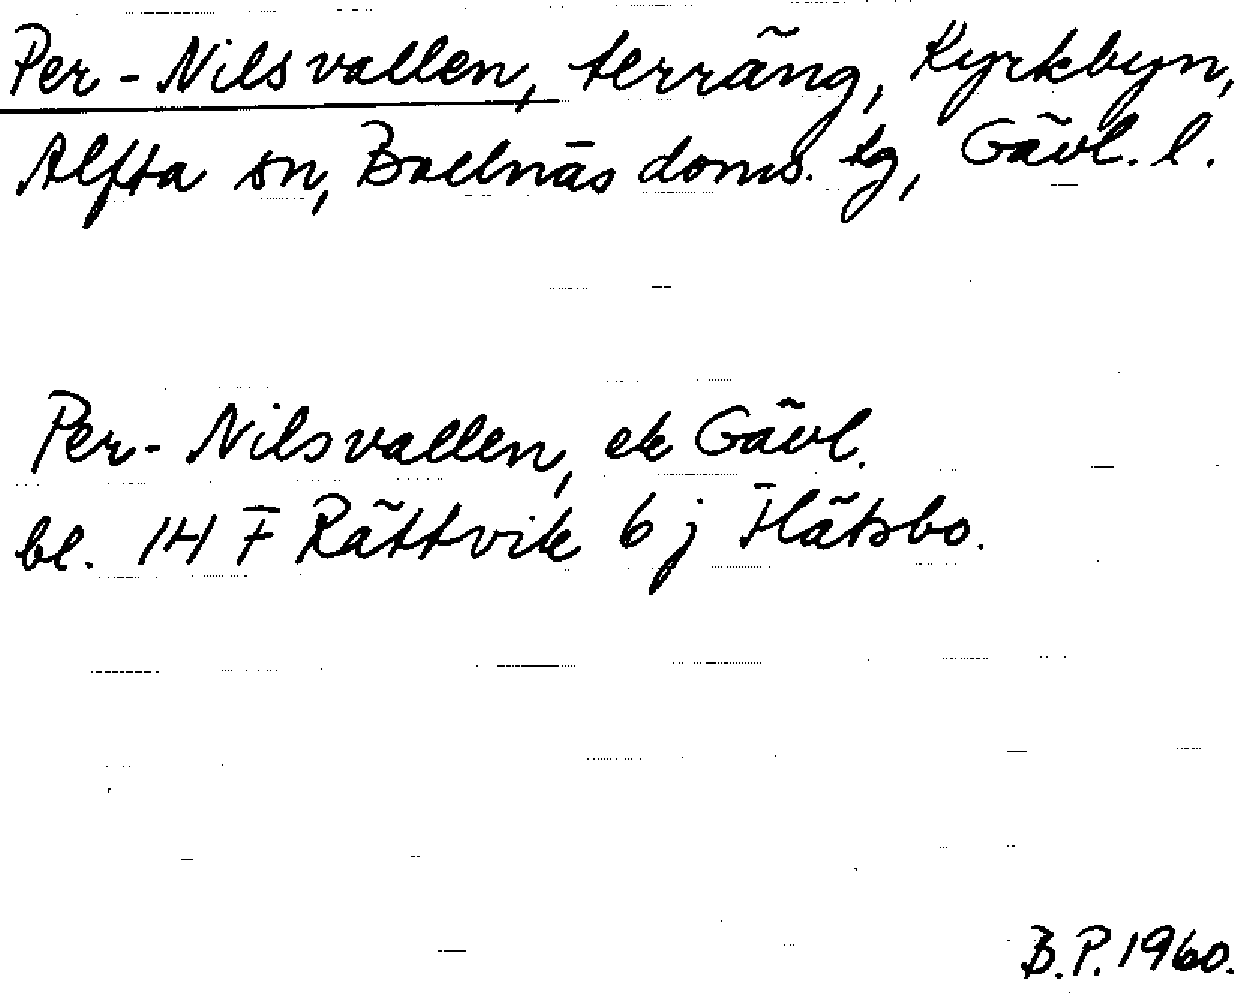 Per-Nilsvallen, terräng, Kyrkbyn,
Alfta sn, Bollnäs doms. lg, Gävl. l.
Per-Nilsvallen, ek Gävl.
bl. 14 F Rättvik 6 j Flätsbo.
B.P. 1960.